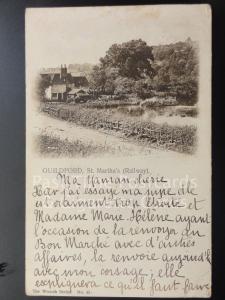 GUILDFORD, St. Martha's (Railway).
Ma Maman chérie
Hier j'ai essayé ma jupe elle
est vraiment trop étroite et
Madame Marie Hélène ayant
l'occasion de la renvoyer au
Bon Marché avec d'autres
affaires, la renvoie aujourd'
avec mon corsage; elle
expliquera ce qu'il faut faire
The Wrench Series No.